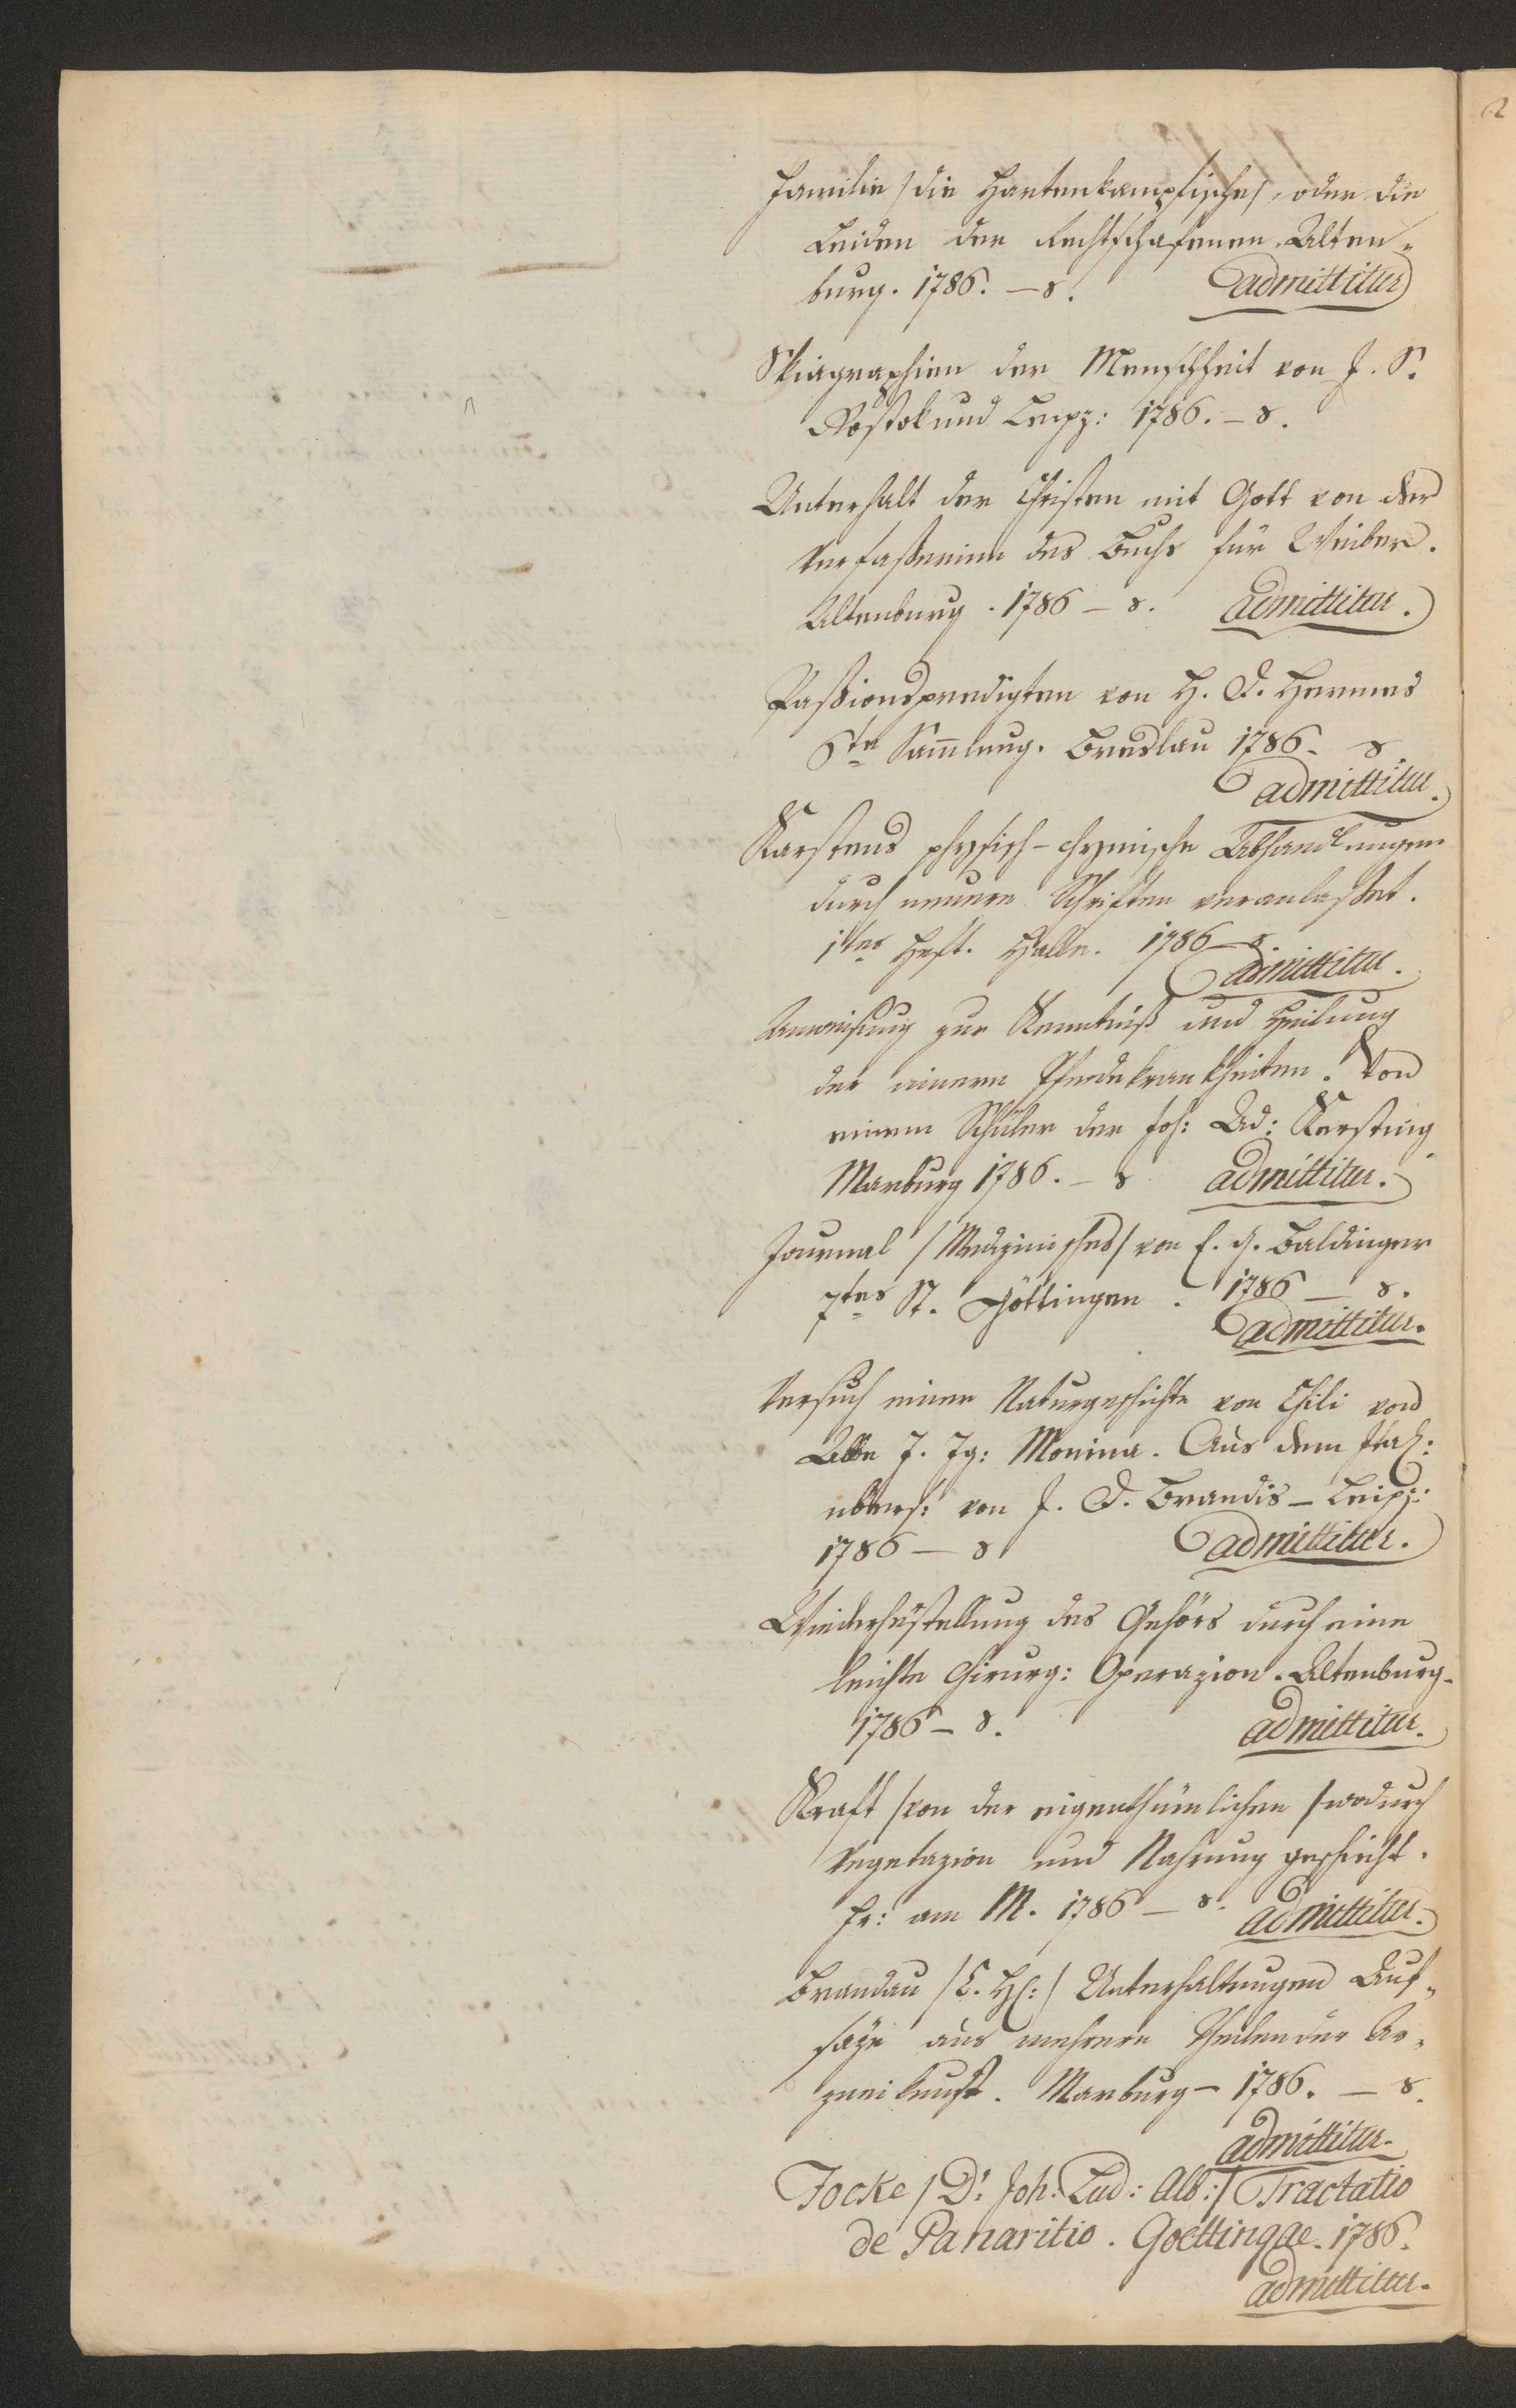 Familie /die Hartenkampfische/, oder die
Leiden der Rechtschafenen. Alten„
burg. 1786. – 8. admittitur
Skiagraphien der Menschheit von J. S.
Rostok und Leipz: 1786. – 8.
Unterhalt der Christen mit Gott von der
Verfaßerinn des Buchs für Weiber.
Altenburg. 1786 – 8. admittitur.
Paßionspredigten von H. D. Hermes
6te Sammlung. Breslau 1786. 8.
admittitur.
Karstens physisch-chymische Abhandlungen
durch neuere Schriften veranlaßet.
1tes Heft. Halle. 1786 – 8.
admittitur.
Anweisung zur Kenntniß und Heilung
der innern Pferdekrankheiten. Von
einem Schüler der Joh: Ad: Kersting
Marburg 1786. – 8 admittitur.
Journal /Medizinisches/ von E. G. Baldinger
7tes St. Göttingen. 1786 – 8.
admittitur.
Versuch einer Naturgeschichte von Chili von
Abbe J. Ig: Monina. Aus dem Ital:
übers: von J. D. Brandis – Leipz:
1786 – 8 admittitur.
Wiederherstellung des Gehörs durch eine
leichte Chirurg: Operazion. Altenburg.
1786 – 8. admittitur.
Kraft /von der eigenthümlichen/ wodurch
Vegetazion und Nahrung geschieht.
Fr: am M. 1786 – 8. admittitur.
Brandau /C. H:/ Unterhaltungen Auf„
säze aus mehrern Theilen der Ar„
zneikunst. Marburg – 1786. – 8.
admittitur.
Focke / Dr. Joh. Lud: Alb:/ Tractatio
de Panaritio. Goettingae. 1786.
admittitur.